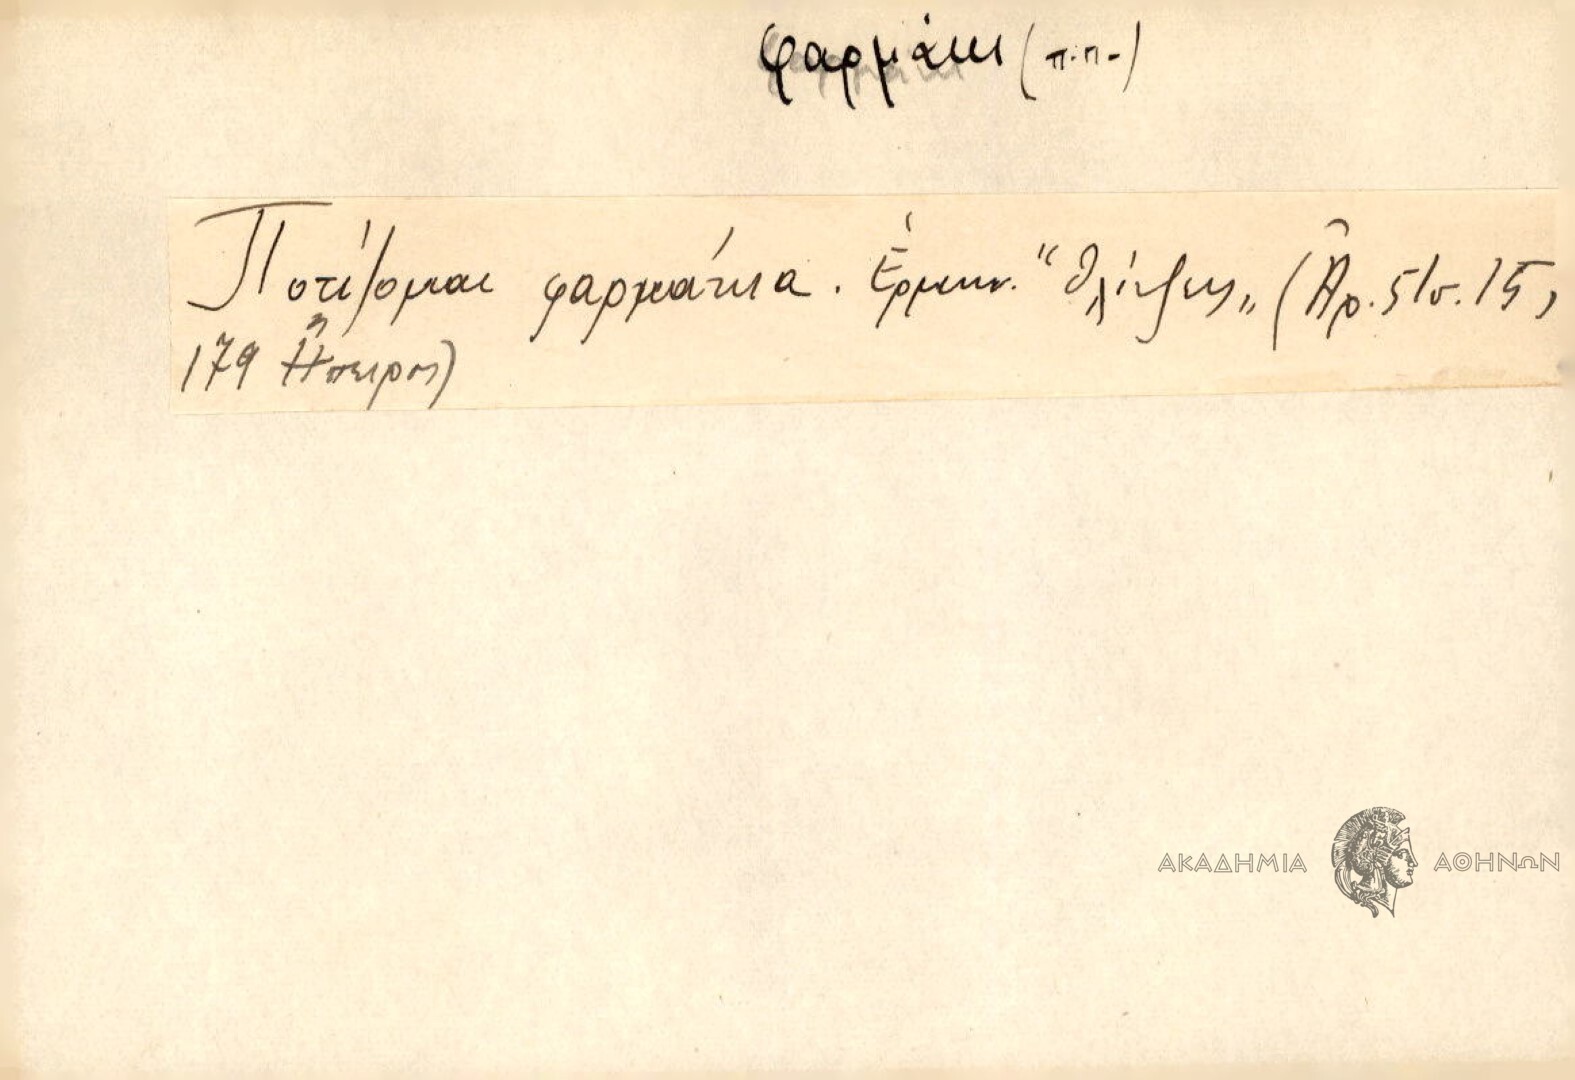 φαρμάκι (π.π.)
Ποτίζομαι φαρμάκια. Ἑρμην. "θλίψεις" (Ἀρ. 51 σ. 15,
179 Ἤπειρος)
ΑΚΑΔΗΜΙΑ ΑΘΗΝΩΝ